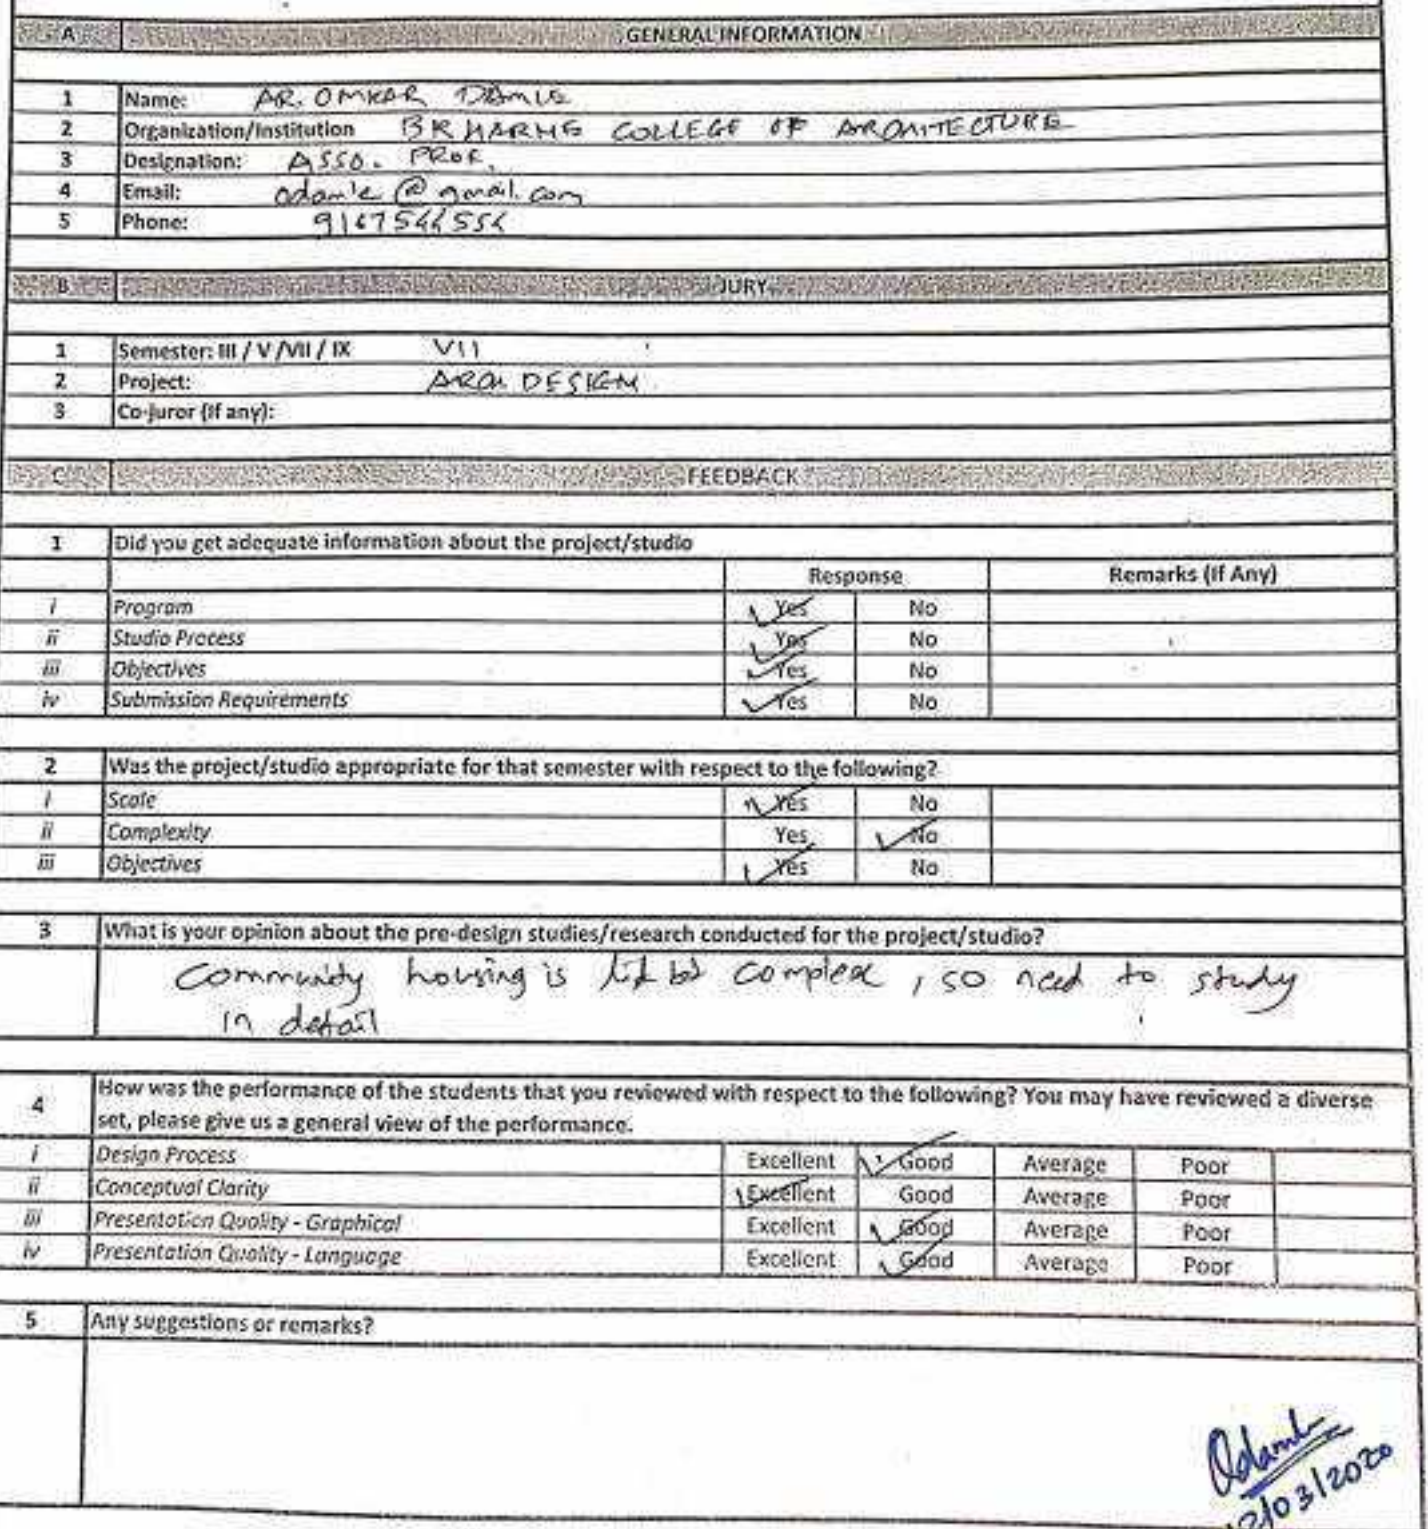 A GENERAL INFORMATION
1 Name: AR. OMKAR DAMLE
2 Organization/Institution BKHARNE COLLEGE OF ARCHITECTURE
3 Designation: ASSO. PROF.
4 Email: odamle@gmail.com
5 Phone:
B JURY
1 Semester: III / V /VII / IX VII
2 Project: ARCH DESIGN
3 Co-juror (if any):
C FEEDBACK
1 Did you get adequate information about the project/studio
Response Remarks (If Any)
i Program Yes No
ii Studio Process Yes No
iii Objectives Yes No
iv Submission Requirements Yes No
2 Was the project/studio appropriate for that semester with respect to the following?
i Scale Yes No
ii Complexity Yes No
iii Objectives Yes No
3 What is your opinion about the pre-design studies/research conducted for the project/studio?
Community housing is complex, so need to study
in detail
4 How was the performance of the students that you reviewed with respect to the following? You may have reviewed a diverse
set, please give us a general view of the performance.
i Design Process Excellent Good Average Poor
ii Conceptual Clarity Excellent Good Average Poor
iii Presentation Quality - Graphical Excellent Good Average Poor
iv Presentation Quality - Language Excellent Good Average Poor
5 Any suggestions or remarks?
Odamle
/03/2020